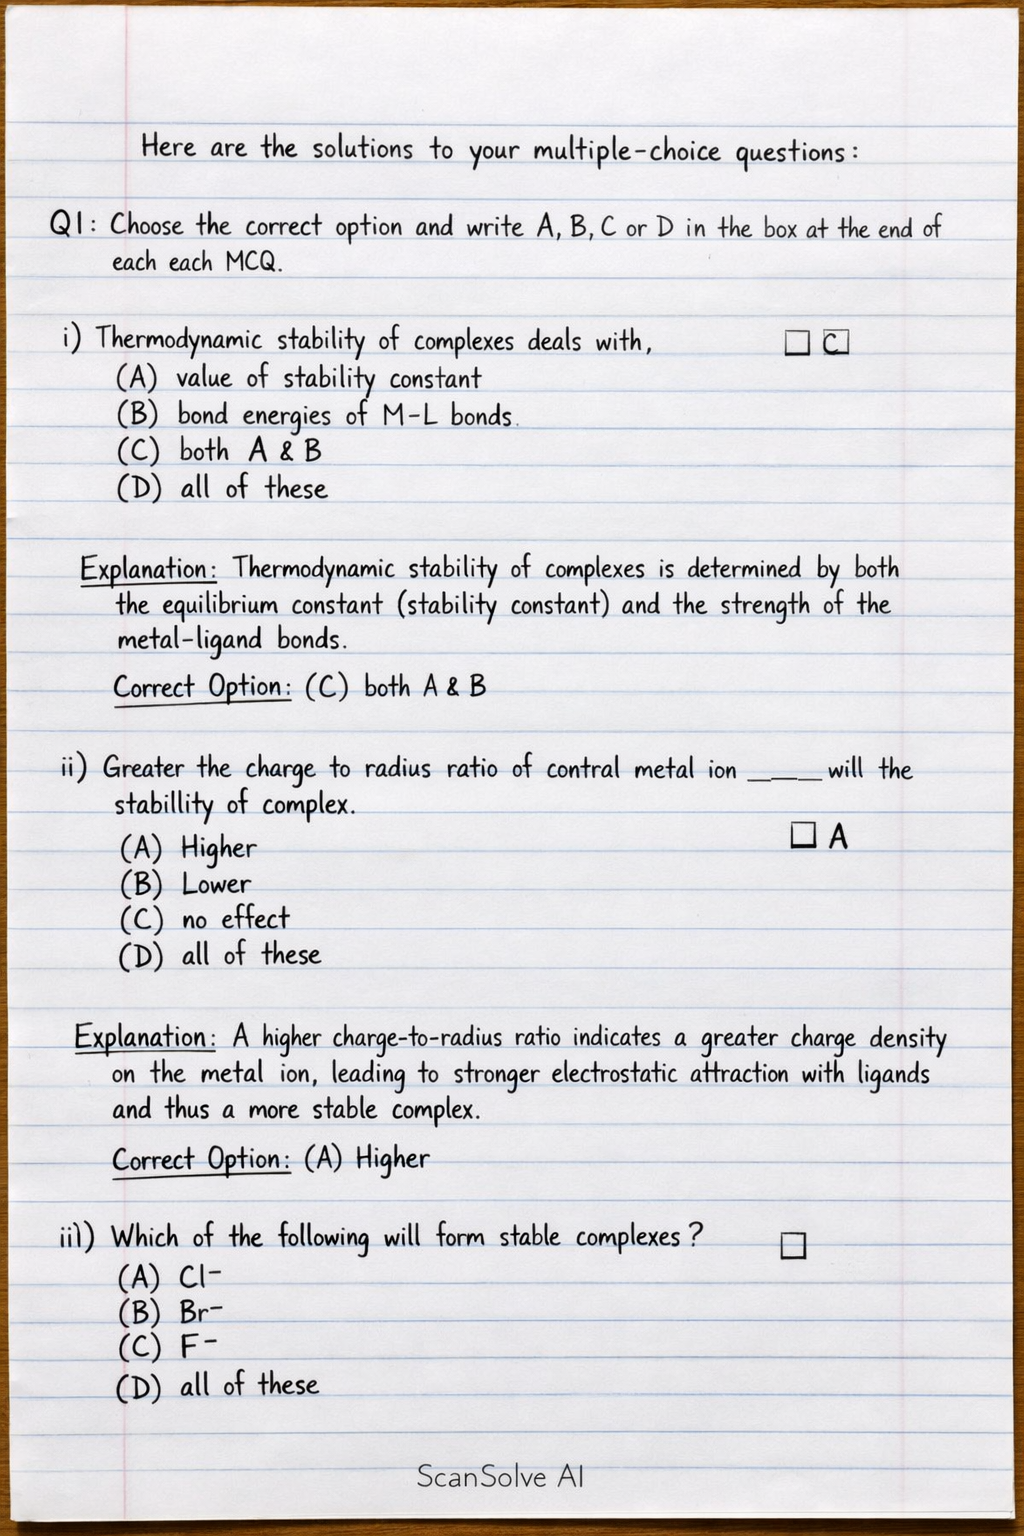 Here are the solutions to your multiple-choice questions:
Q1: Choose the correct option and write A, B, C or D in the box at the end of
each each MCQ.
i) Thermodynamic stability of complexes deals with, □ C
(A) value of stability constant
(B) bond energies of M-L bonds.
(C) both A & B
(D) all of these
Explanation: Thermodynamic stability of complexes is determined by both
the equilibrium constant (stability constant) and the strength of the
metal-ligand bonds.
Correct Option: (C) both A & B
ii) Greater the charge to radius ratio of contral metal ion ______ will the
stabillity of complex.
□ A
(A) Higher
(B) Lower
(C) no effect
(D) all of these
Explanation: A higher charge-to-radius ratio indicates a greater charge density
on the metal ion, leading to stronger electrostatic attraction with ligands
and thus a more stable complex.
Correct Option: (A) Higher
iii) Which of the following will form stable complexes? □
(A) Cl-
(B) Br-
(C) F-
(D) all of these
ScanSolve AI